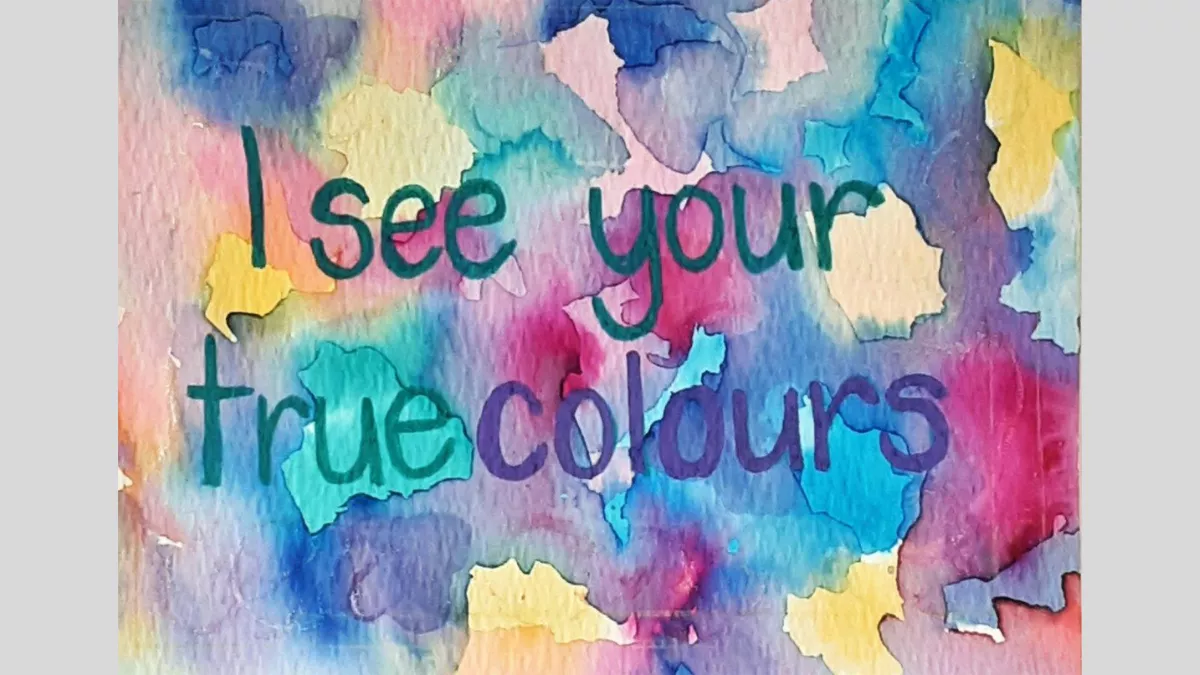 I see your
true colours